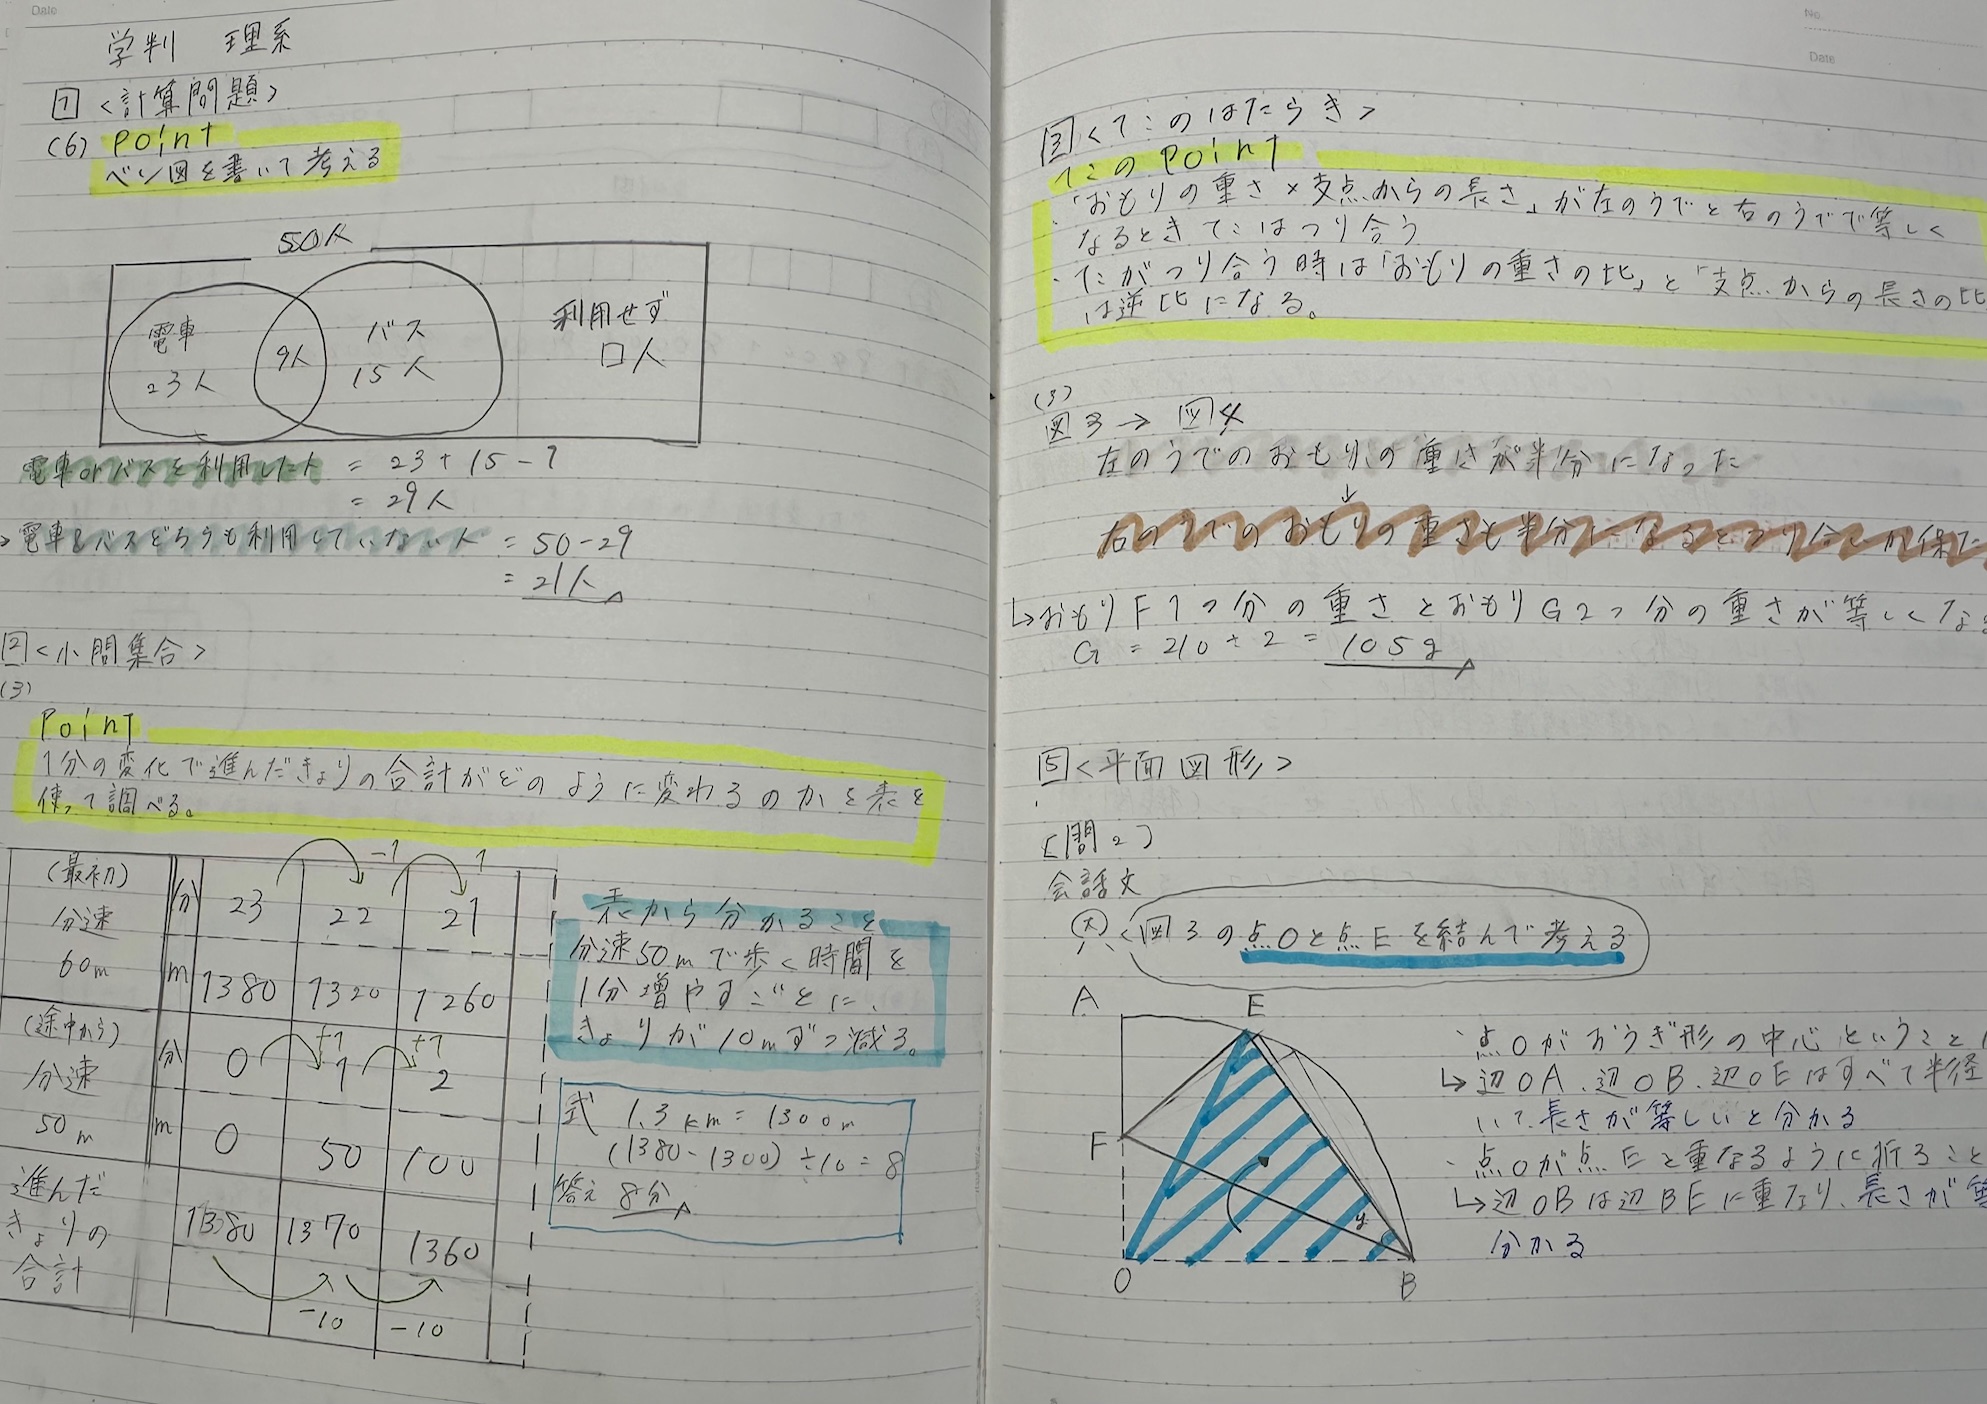 Date
学判 理系
1 <計算問題>
(6) Point
ベン図を書いて考える
50人
電車
23人
9人
バス
15人
利用せず
□人
電車orバスを利用した人 = 23+15-9
= 29人
→電車&バスどちらも利用していない人 = 50-29
= 21人
2 <小問集合>
(3)
Point
1分の変化で進んだきょりの合計がどのように変わるのかを表を
使って調べる。
-1 1
(最初)
分速
60m
分 23 22 21
m 1380 1320 1260
(途中から)
分速
50m
+1 +1
分 0 1 2
m 0 50 100
進んだ
きょりの
合計
1380 1370 1360
-10 -10
表から分かること
分速50mで歩く時間を
1分増やすごとに、
きょりが10mずつ減る。
式 1.3km=1300m
(1380-1300)÷10=8
答え 8分
No.
Date
3 <てこのはたらき>
てこのPoint
・「おもりの重さ×支点からの長さ」が左のうでと右のうでで等しく
なるときてこはつり合う
・てこがつり合う時は「おもりの重さの比」と「支点からの長さの比
は逆比になる。
(3)
図3→図4
左のうでのおもりの重さが半分になった
↓
右のうでのおもりの重さも半分になるとつり合いが保た
↳おもりF1つ分の重さとおもりG2つ分の重さが等しくな
G=210÷2=105g
5 <平面図形>
[問2]
会話文
図3の点Oと点Eを結んで考える
A E
F
O B
・点Oがおうぎ形の中心ということ
↳辺OA、辺OB、辺OEはすべて半径
いて、長さが等しいと分かる
・点Oが点Eと重なるように折ること
↳辺OBは辺BEに重なり、長さが等
分かる